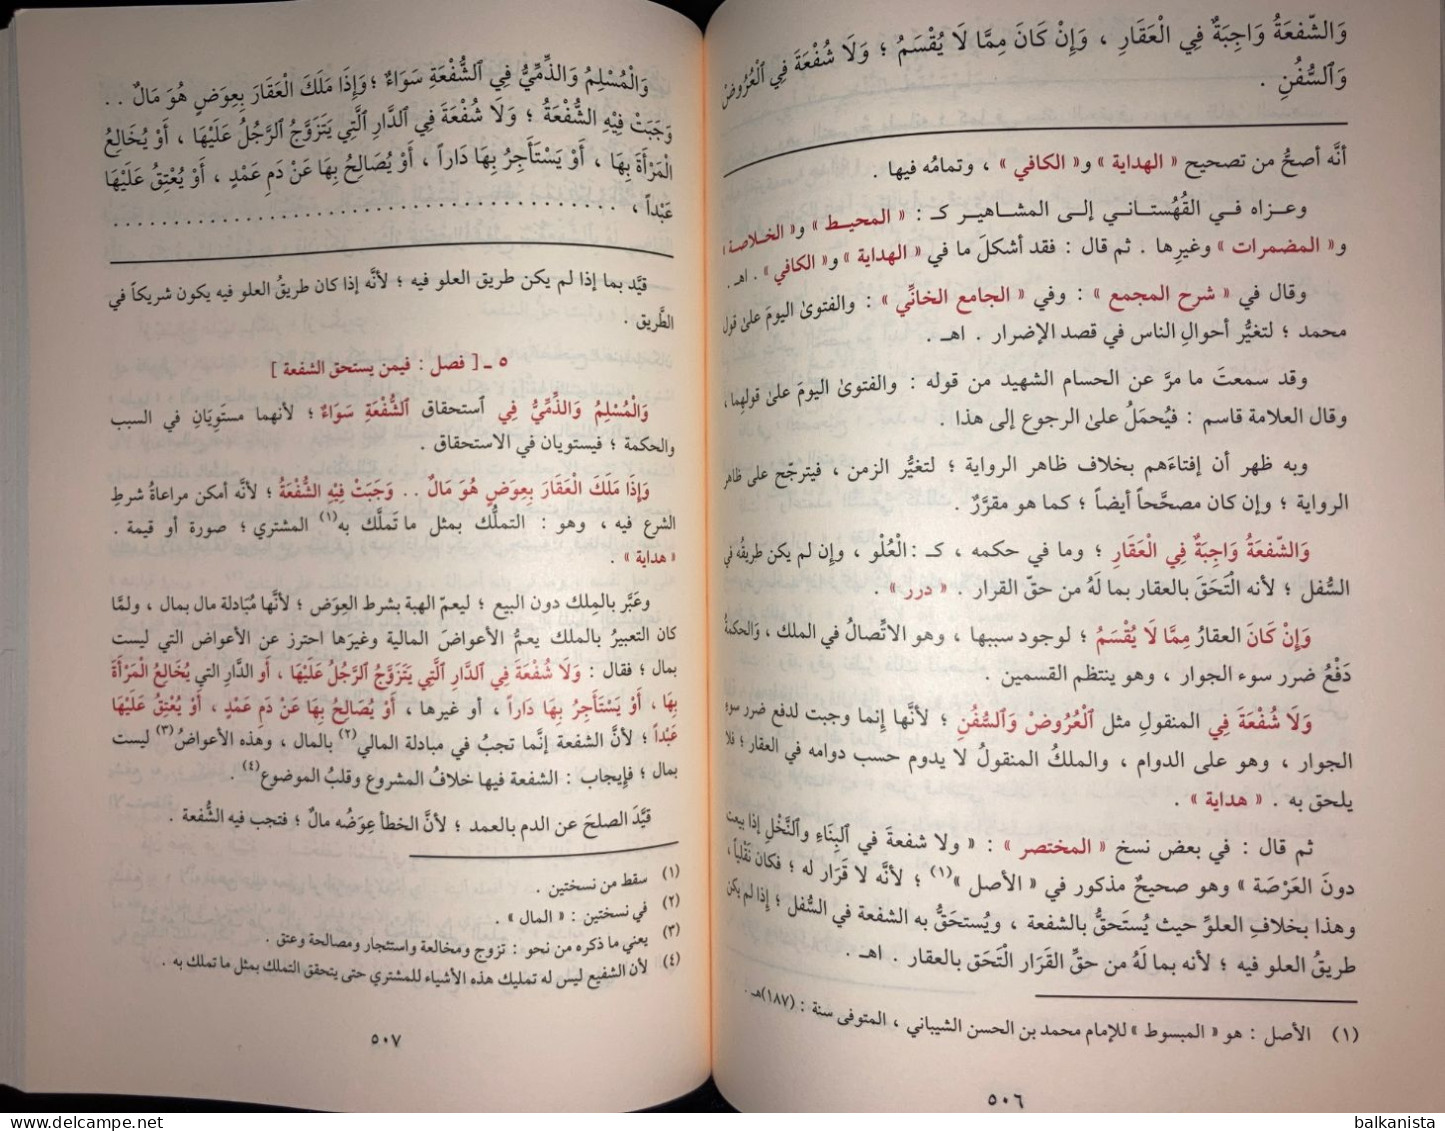 وَالشّفعَةُ وَاجِبَةٌ فِي الْعَقَارِ ، وَإِنْ كَانَ مِمَّا لَا يُقْسَمُ ؛ وَلَا شُفْعَةَ فِي ٱلْعُرُوضْ
وَٱلسُّفُنِ .
أنَّه أصحُّ من تصحيح « الهداية » و« الكافي » ، وتمامُه فيها .
وعـزاه فـي القُهُستـانـي إلـى المشـاهيـر كـ : « المحيـط » و« الخـلاصـة »
و« المضمرات » وغيرِها . ثم قال : فقد أشكلَ ما في « الهداية » و« الكافي » . اهـ .
وقال في « شرح المجمع » : وفي « الجامع الخانِّي » : والفتوىٰ اليومَ علىٰ قول
محمد ؛ لتغيُّر أحوالِ الناس في قصد الإضرار . اهـ .
وقد سمعتَ ما مرَّ عن الحسام الشهيد من قوله : والفتوىٰ اليومَ علىٰ قولِهما ،
وقال العلامة قاسم : فيُحمَلُ علىٰ الرجوع إلى هذا .
وبه ظهر أن إفتاءَهم بخلاف ظاهر الرواية ؛ لتغيُّر الزمن ، فيترجّح على ظاهر
الرواية ؛ وإن كان مصحَّحاً أيضاً ؛ كما هو مقرَّرٌ .
وَالشّفعَةُ وَاجِبَةٌ فِي الْعَقَارِ ؛ وما في حكمه ، كـ : الْعُلْو ، وإن لم يكن طريقُه في
السُّفل ؛ لأنه الْتَحَقَ بالعقار بما لَهُ من حقّ القرار . « درر » .
وَإِنْ كَانَ العقارُ مِمَّا لَا يُقْسَمُ ؛ لوجود سببها ، وهو الاتّصالُ في الملك ، وَالحكمةُ
دَفْعُ ضرر سوء الجوار ، وهو ينتظم القسمين .
وَلَا شُفْعَةَ فِي المنقولِ مثل ٱلْعُرُوضْ وَٱلسُّفُنِ ؛ لأنَّها إنما وجبت لدفع ضرر سوء
الجوار ، وهو على الدوام ، والملكُ المنقولُ لا يدوم حسب دوامه في العقار ؛ فلا
يلحق به . « هداية » .
ثم قال : في بعض نسخ « المختصر » : « ولا شفعةَ في ٱلبِنَاءِ وٱلنَّخْلِ إذا بيعت
دونَ العَرْصَة » وهو صحيحٌ مذكور في « الأصل »(١) ؛ لأنَّه لا قَرَار له ؛ فكان نَقْلياً ،
وهذا بخلافِ العلوِّ حيث يُستَحقُّ بالشفعة ، ويُستحَقُّ به الشفعة في السُّفل ؛ إذا لم يكن
طريقُ العلو فيه ؛ لأنه بما لَهُ من حقِّ القَرَار الْتَحَق بالعقار . اهـ .
(١) الأصل : هو « المبسوط » للإمام محمد بن الحسن الشيباني ، المتوفى سنة : (١٨٧)هـ .
٥٠٦
وَالْمُسْلِمُ وَالذِّمِّيُّ فِي ٱلشُّفْعَةِ سَوَاءٌ ؛ وَإِذَا مَلَكَ الْعَقَارَ بِعِوَضٍ هُوَ مَالٌ . .
وَجَبَتْ فِيْهِ الشُّفْعَةُ ؛ وَلَا شُفْعَةَ فِي ٱلدَّارِ ٱلَّتِي يَتَزَوَّجُ ٱلرَّجُلُ عَلَيْهَا ، أَوْ يُخَالِعُ
الْمَرْأَةَ بِهَا ، أَوْ يَسْتَأْجِرُ بِهَا دَاراً ، أَوْ يُصَالِحُ بِهَا عَنْ دَمِ عَمْدٍ ، أَوْ يُعْتِقُ عَلَيْهَا
عَبْداً ، . . . . . . . . . . . . . . . . . . . . . . . . . . . . . . . . . . . . . . . .
قيَّد بما إذا لم يكن طريق العلو فيه ؛ لأنَّه إذا كان طريقُ العلو فيه يكون شريكاً في
الطَّريق .
٥ ـ [ فصل : فيمن يستحق الشفعة ]
وَالْمُسْلِمُ وَالذِّمِّيُّ فِي ٱستحقاق ٱلشُّفْعَةِ سَوَاءٌ ؛ لأنهما مستوِيَانِ في السبب
والحكمة ؛ فيستويان في الاستحقاق .
وَإِذَا مَلَكَ الْعَقَارَ بِعِوَضٍ هُوَ مَالٌ . . وَجَبَتْ فِيْهِ الشُّفْعَةُ ؛ لأنَّه أمكن مراعاةُ شرطِ
الشرع فيه ، وهو : التملُّك بمثل ما تَملَّك به(١) المشتري ؛ صورة أو قيمة .
« هداية » .
وعَبَّر بالمِلك دون البيع ؛ ليعمّ الهبة بشرط العِوَض ؛ لأنَّها مُبَادلة مال بمال ، ولمَّا
كان التعبيرُ بالملك يعمُّ الأعواضَ المالية وغيرَها احترز عن الأعواض التي ليست
بمال ؛ فقال : وَلَا شُفْعَةَ فِي ٱلدَّارِ ٱلَّتِي يَتَزَوَّجُ ٱلرَّجُلُ عَلَيْهَا ، أَو الدَّارِ التي يُخَالِعُ الْمَرْأَةَ
بِهَا ، أَوْ يَسْتَأْجِرُ بِهَا دَاراً ، أو غيرها ، أَوْ يُصَالِحُ بِهَا عَنْ دَمِ عَمْدٍ ، أَوْ يُعْتِقُ عَلَيْهَا
عَبْداً ؛ لأنَّ الشفعة إنَّما تجبُ في مبادلة المالي(٢) بالمال ، وهذه الأعواضُ(٣) ليست
بمال ؛ فإيجاب : الشفعة فيها خلافُ المشروع وقلبُ الموضوع(٤) .
قيَّدَ الصلحَ عن الدم بالعمد ؛ لأنَّ الخطأ عِوَضُه مالٌ ؛ فتجب فيه الشُّفعة .
(١) سقط من نسختين .
(٢) في نسختين : « المال » .
(٣) يعني ما ذكره من نحو : تزوج ومخالعة واستئجار ومصالحة وعتق .
(٤) لأن الشفيع ليس له تمليك هذه الأشياء للمشتري حتى يتحقق التملك بمثل ما تملك به .
٥٠٧
balkanista